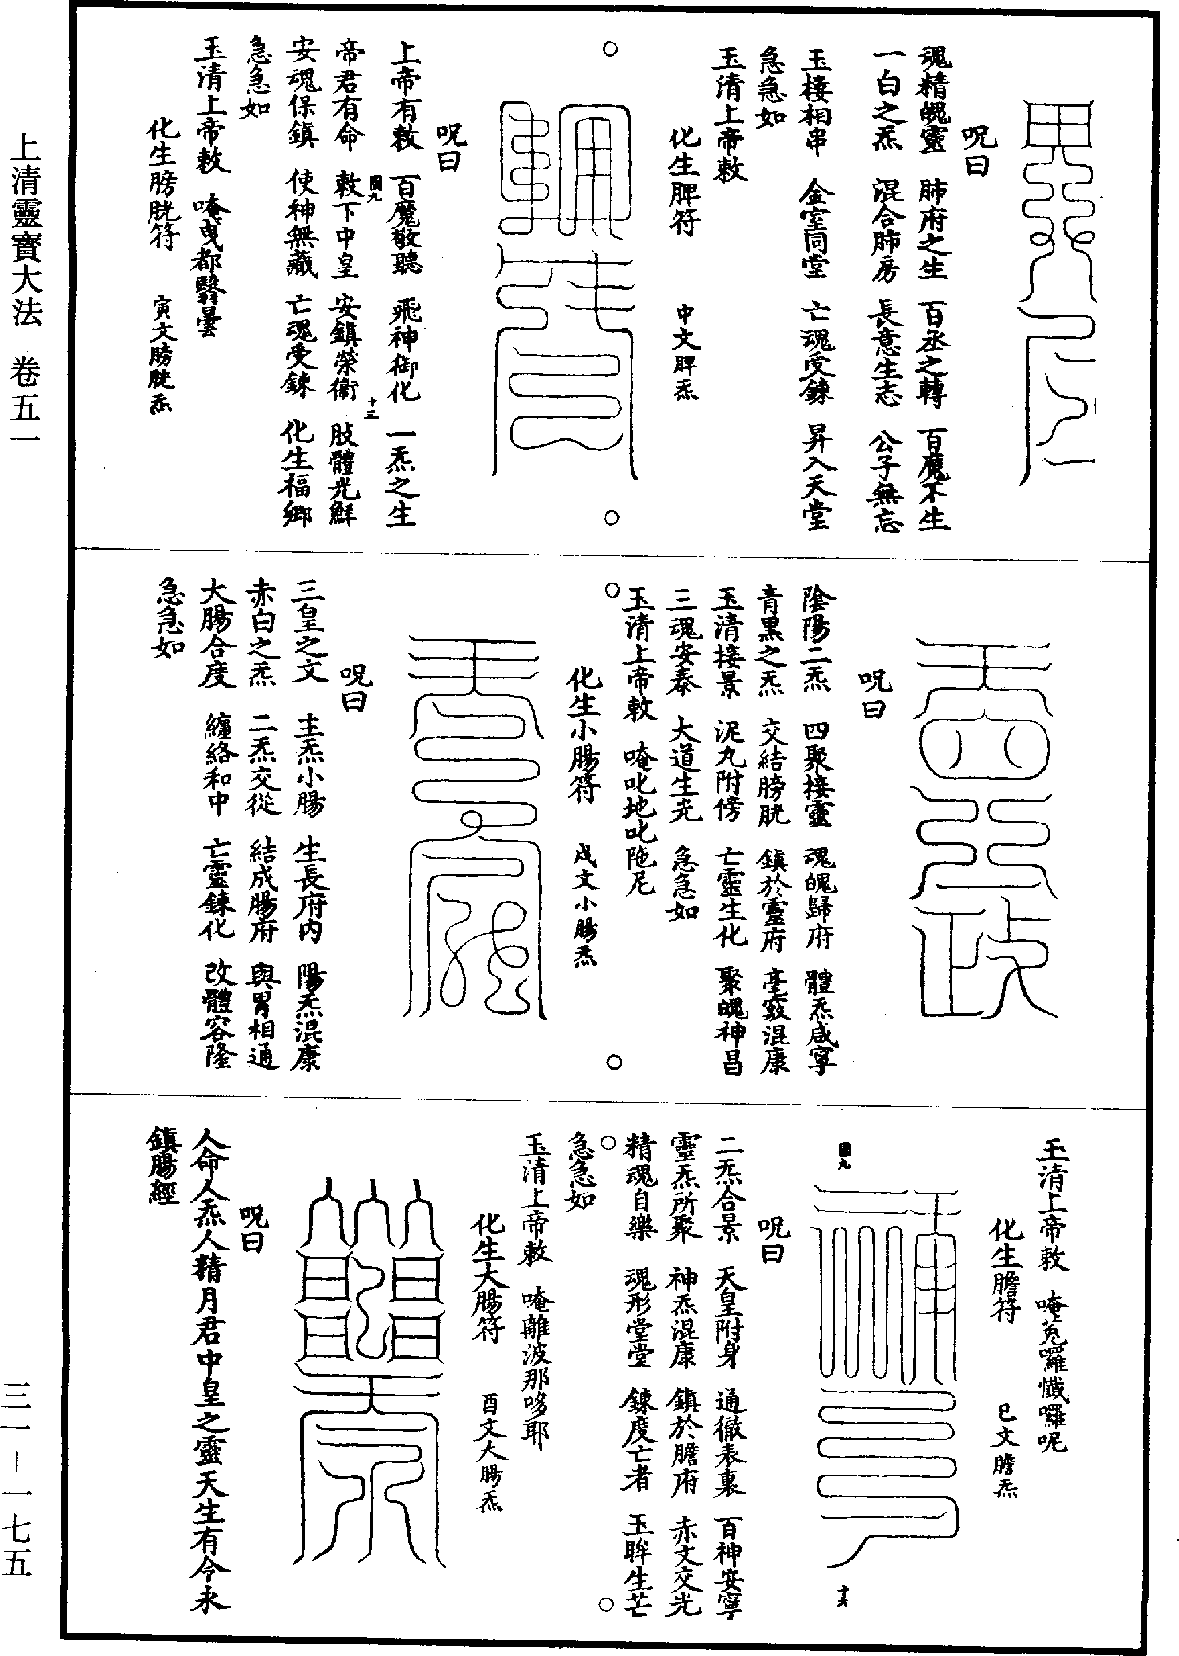 上清靈寶大法　卷五一
呪曰
魂精魄靈　肺府之生　百丞之轉　百魔不生
一白之炁　混合肺房　長意生志　公子無忘
玉接相串　金室同堂　亡魂受鍊　昇入天堂
急急如
玉清上帝敕
化生脾符　中文脾炁
呪曰
上帝有敕　百魔敬聽　飛神御化　一炁之生
帝君有命　敕下中皇　安鎮榮衞　肢體光鮮
安魂保鎮　使神無藏　亡魂受鍊　化生福鄉
急急如
玉清上帝敕　唵曳都翳曇
化生膀胱符　寅文膀胱炁
呪曰
陰陽二炁　四聚接靈　魂魄歸府　體炁咸寧
青黑之炁　交結膀胱　鎮於靈府　毫竅混康
玉清接景　泥丸附傍　亡靈生化　聚魄神昌
三魂安泰　大道生光　急急如
玉清上帝敕　唵叱地叱陁尼
化生小腸符　戌文小腸炁
呪曰
三皇之文　主炁小腸　生長府內　陽炁混康
赤白之炁　二炁交從　結成腸府　與胃相通
大腸合度　纏絡和中　亡靈鍊化　改體容隆
急急如
玉清上帝敕　唵兎囉懺囉呢
化生膽符　巳文膽炁
呪曰
二炁合景　天皇附身　通徹表裏　百神安寧
靈炁所聚　神炁混康　鎮於膽府　赤文交光
精魂自樂　魂形堂堂　鍊度亡者　玉眸生芒
急急如
玉清上帝敕　唵離波那哆耶
化生大腸符　酉文大腸炁
呪曰
人命人炁人精月君中皇之靈天生有令永
鎮腸經
三一－一七五